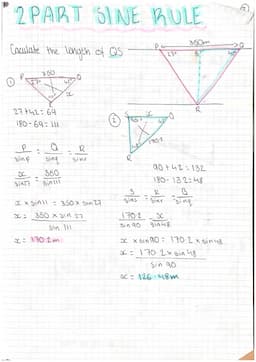 2 PART SINE RULE
Caculate the length of QS
350m
P
Q
27°
42°
R
①
350
P
Q
27°
42°
x
R
27+42=69
180-69=111
P/sinp = Q/sinq = R/sinr
x/sin27 = 350/sin111
x × sin111 = 350 × sin 27
x = 350 × sin 27 / sin 111
x = 170.2m
②
x
Q
90°
42°
170.2
R
90+42=132
180-132=48
S/sins = R/sinr = Q/sinq
170.2/sin 90 = x/sin48
x × sin90 = 170.2 × sin48
x = 170.2 × sin 48 / sin 90
x = 126.48m